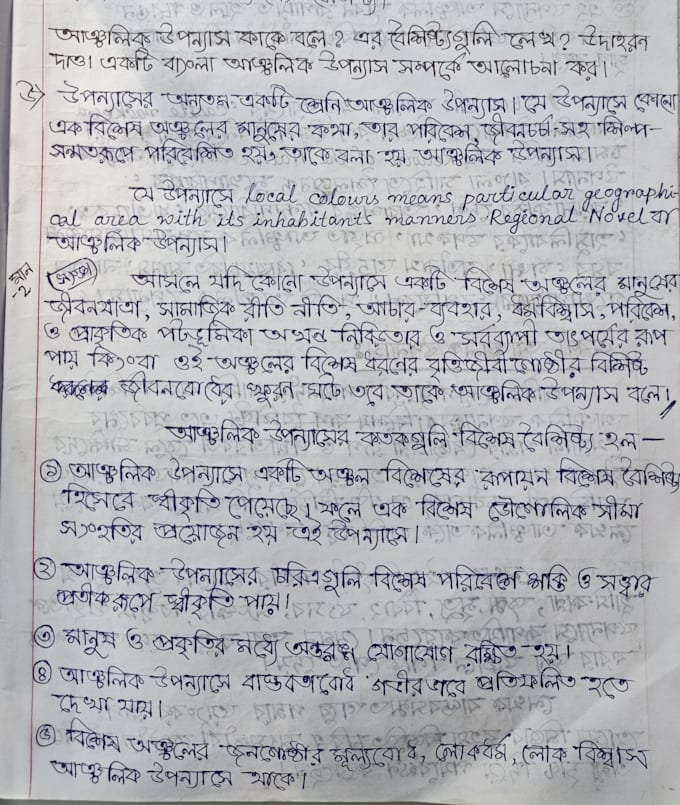 আঞ্চলিক উপন্যাস কাকে বলে? এর বৈশিষ্ট্যগুলি লেখ? উদাহরন
দাও। একটি বাংলা আঞ্চলিক উপন্যাস সম্পর্কে আলোচনা কর।
উঃ উপন্যাসের অন্যতম একটি শ্রেনি আঞ্চলিক উপন্যাস। যে উপন্যাসে কোনো
এক বিশেষ অঞ্চলের মানুষের কথা, তার পরিবেশ, জীবনচর্চা সহ শিল্প-
সম্মতরূপে পরিবেশিত হয়, তাকে বলা হয় আঞ্চলিক উপন্যাস।
যে উপন্যাসে local colours means particular geographi-
cal area with its inhabitants manners Regional Novel বা
আঞ্চলিক উপন্যাস।
মান -2
সংজ্ঞা আসলে যদি কোনো উপন্যাসে একটি বিশেষ অঞ্চলের মানুষের
জীবনযাত্রা, সামাজিক রীতি নীতি, আচার-ব্যবহার, ধর্মবিশ্বাস, পরিবেশ,
ও প্রাকৃতিক পটভূমিকা অখন্ড নিবিড়তার ও সর্বব্যাপী তাৎপর্যের রূপ
পায় কিংবা ওই অঞ্চলের বিশেষ ধরণের বৃত্তিজীবী গোষ্ঠীর বিশিষ্ট
জীবনবোধের স্ফুরণ ঘটে তবে তাকে আঞ্চলিক উপন্যাস বলে।
আঞ্চলিক উপন্যাসের কতকগুলি বিশেষ বৈশিষ্ট্য হল —
① আঞ্চলিক উপন্যাসে একটি অঞ্চল বিশেষের রূপায়ন বিশেষ বৈশিষ্ট্য
হিসেবে স্বীকৃতি পেয়েছে। ফলে এক বিশেষ ভৌগোলিক সীমা
সংহতির প্রয়োজন হয় এই উপন্যাসে।
② আঞ্চলিক উপন্যাসের চরিত্রগুলি বিশেষ পরিবেশে শক্তি ও সত্ত্বার
প্রতীক রূপে স্বীকৃতি পায়।
③ মানুষ ও প্রকৃতির মধ্যে অন্তরঙ্গ যোগাযোগ রক্ষিত হয়।
④ আঞ্চলিক উপন্যাসে বাস্তবতাবোধ গভীর ভাবে প্রতিফলিত হতে
দেখা যায়।
⑤ বিশেষ অঞ্চলের জনগোষ্ঠীর মূল্যবোধ, লোকধর্ম, লোক বিশ্বাস
আঞ্চলিক উপন্যাসে থাকে।